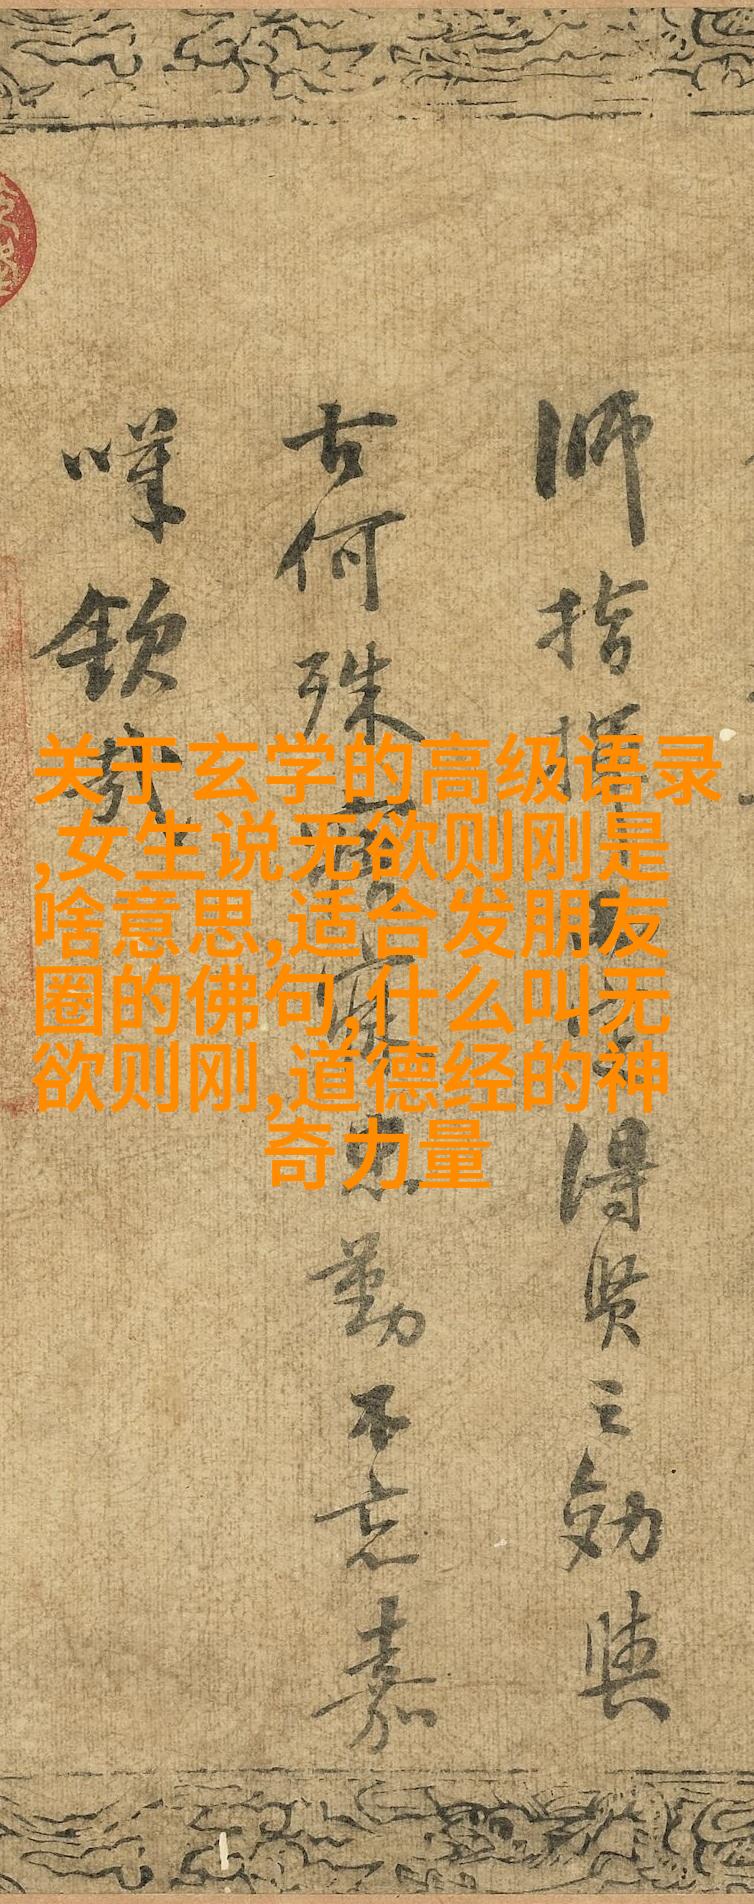 关于玄学的高级语录
,女生说无欲则刚是
啥意思,适合发朋友
圈的佛句,什么叫无
欲则刚,道德经的神
奇力量
師指揮得賢之効與
古何殊忠勤不忘嘉
嘆欽哉